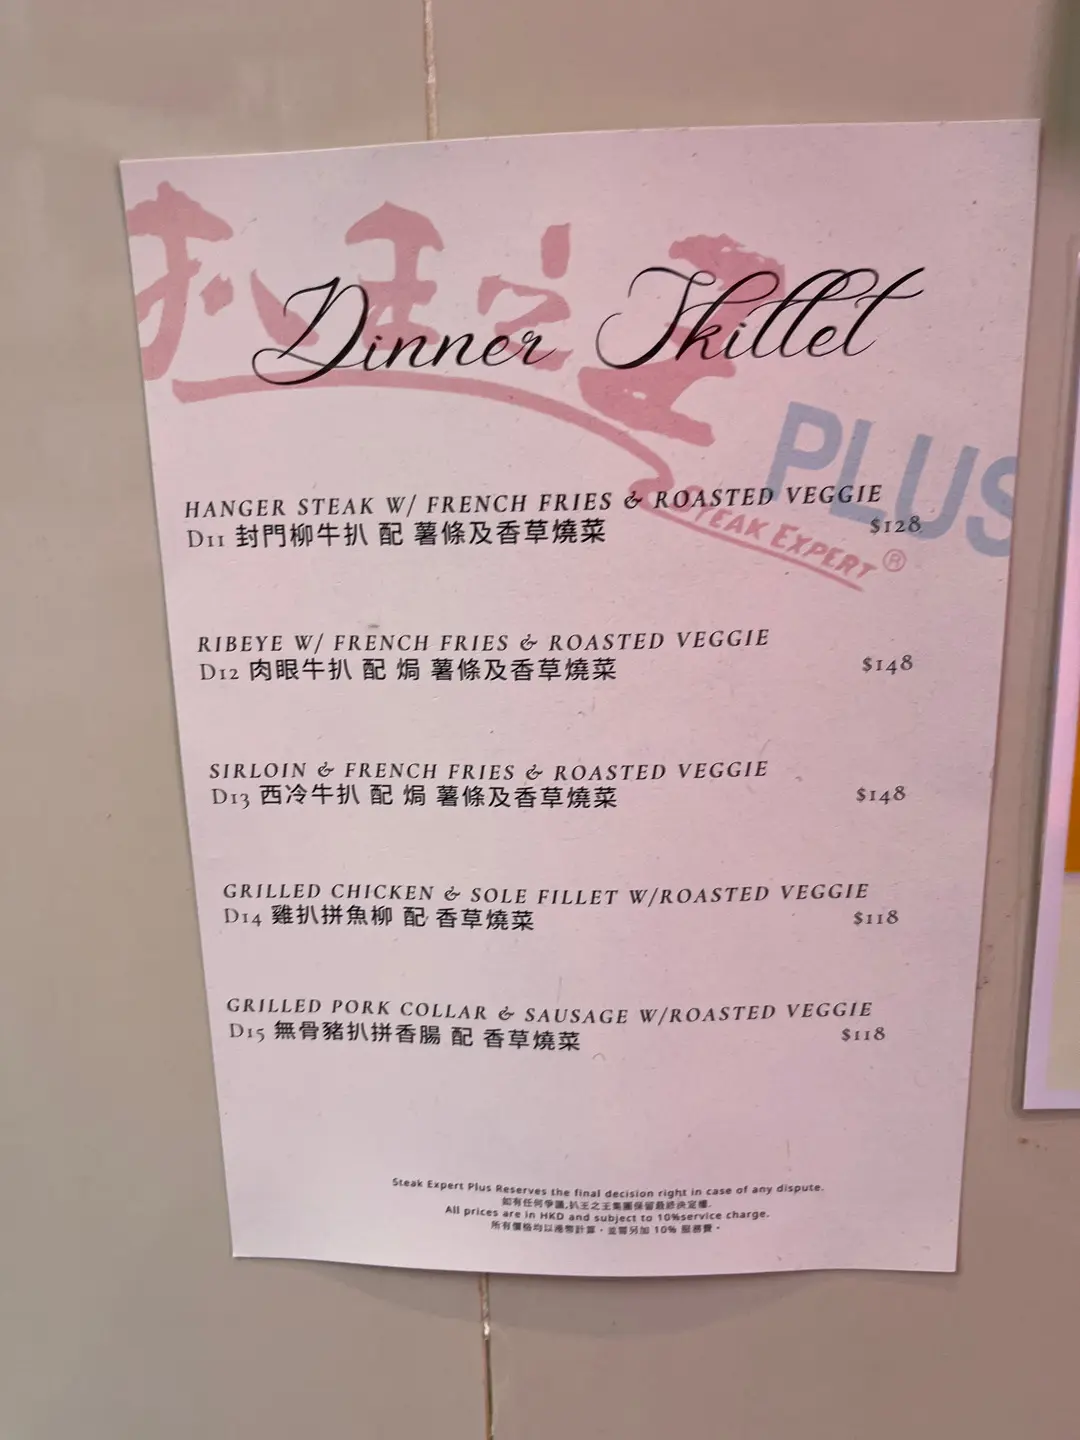 扒王之王
Dinner Skillet
PLUS
STEAK EXPERT®
HANGER STEAK W/ FRENCH FRIES & ROASTED VEGGIE
D11 封門柳牛扒 配 薯條及香草燒菜 $128
RIBEYE W/ FRENCH FRIES & ROASTED VEGGIE
D12 肉眼牛扒 配 焗 薯條及香草燒菜 $148
SIRLOIN & FRENCH FRIES & ROASTED VEGGIE
D13 西冷牛扒 配 焗 薯條及香草燒菜 $148
GRILLED CHICKEN & SOLE FILLET W/ROASTED VEGGIE
D14 雞扒拼魚柳 配 香草燒菜 $118
GRILLED PORK COLLAR & SAUSAGE W/ROASTED VEGGIE
D15 無骨豬扒拼香腸 配 香草燒菜 $118
Steak Expert Plus Reserves the final decision right in case of any dispute.
如有任何爭議,扒王之王集團保留最終決定權.
All prices are in HKD and subject to 10%service charge.
所有價格均以港幣計算，並需另加 10% 服務費。